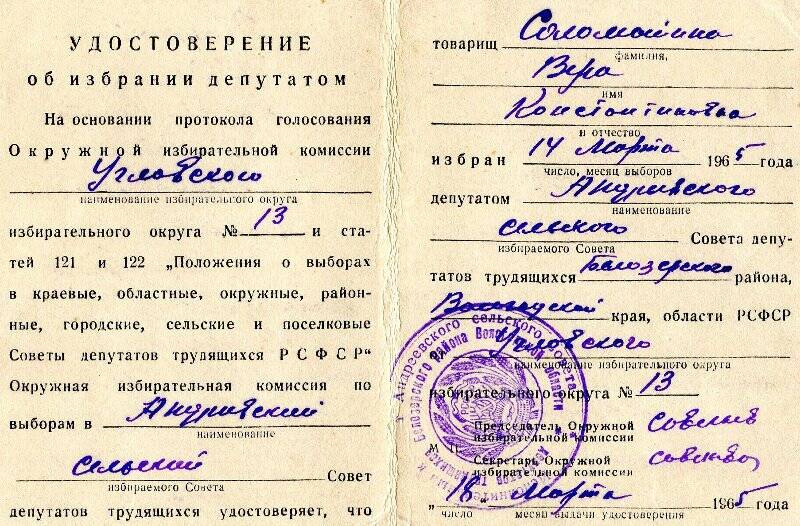 УДОСТОВЕРЕНИЕ
об избрании депутатом
На основании протокола голосования
Окружной избирательной комиссии
Угловского
наименование избирательного округа
избирательного округа № 13 и ста-
тей 121 и 122 „Положения о выборах
в краевые, областные, окружные, район-
ные, городские, сельские и поселковые
Советы депутатов трудящихся РСФСР“
Окружная избирательная комиссия по
выборам в Андриевский
наименование
сельский Совет
избираемого Совета
депутатов трудящихся удостоверяет, что
товарищ Соломатина
фамилия,
Вера
имя
Константиновна
и отчество
избран 14 Марта 1965 года
число, месяц выборов
депутатом Андриевского
наименование
сельского Совета депу-
избираемого Совета
татов трудящихся Белозерского района,
Вологодской края, области РСФСР
Угловского
наименование избирательного округа
избирательного округа № 13
Председатель Окружной
избирательной комиссии
Секретарь Окружной
избирательной комиссии
„16 “ Марта 1965 года
число месяц выдачи удостоверения
Андреевского сельского Совета
Белозерского района Вологодской области